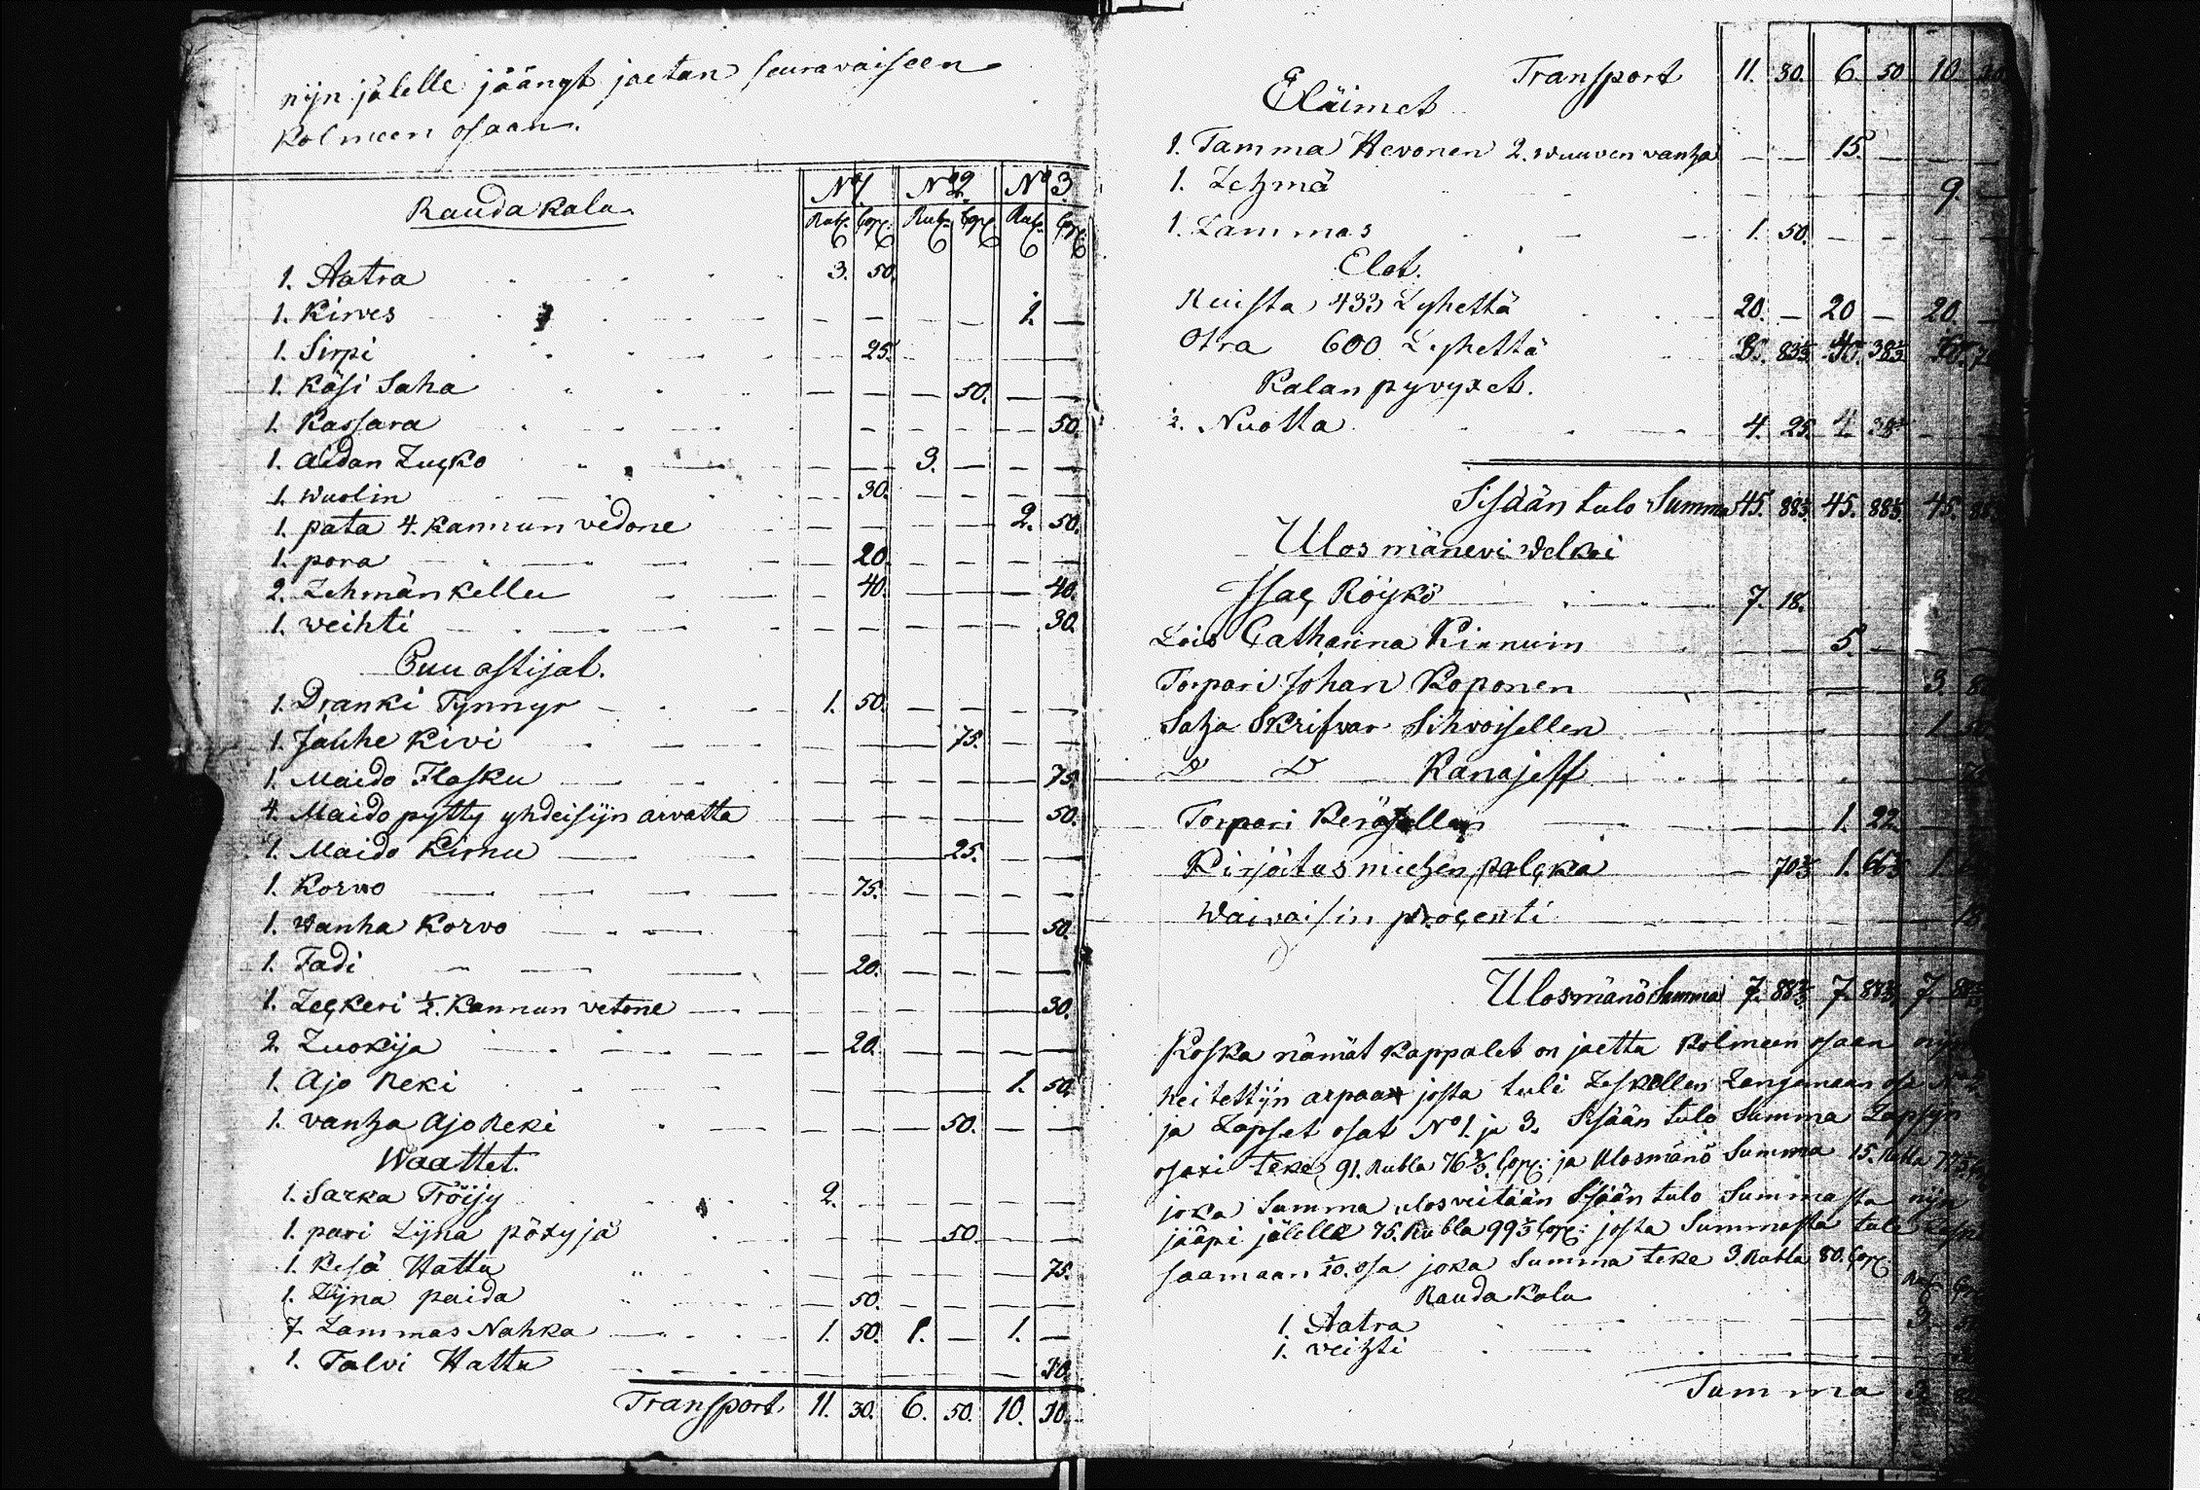 nijn jälelle jäängt jaetan seuravaiseen
Kolmeen osaan.
Rauda Kalu.
No 1. No 2. No 3.
Rub. Cop. Rub. Cop. Rub. Cop.
1. Aatra 3. 50.
1. Kirves 1. —
1. Sirpi 25.
1. Käsi Saha 50.
1. Kassara 50.
1. aidan Luçko 3. —
1. Wuolin 30.
1. pata 4. Kannun vedone 2. 50.
1. pora 20.
2. Lehmän kellu 40. 40.
1. veihti 30.
Puu astijat.
1. Dranki Tynnyr 1. 50.
1. Jauhe Kivi 75.
1. Maido Flasku 75.
4. Maido pytty yhdeisijn arvatta 50.
1. Maido Kirnu 25.
1. Korvo 75.
1. Wanha Korvo 50.
1. Tadi 20.
1. Leçkeri ½. Kannun vetone 30.
2. Luokija 20.
1. Ajo Reki 1. 50.
1. vanha Ajo Reki 50.
Waattet.
1. Sarka Tröijy 2.
1. pari Lijna pöxyjä 50.
1. Kesä Hattu 75.
1. Lijna paida 50.
7. Lammas Nahka 1. 50. 1. — 1. —
1. Talvi Hattu 30.
Transport 11. 30. 6. 50. 10. 30.
Transport 11. 30. 6. 50 10.
Eläimet
1. Tamma Hevonen 2. wuuven vanha 15.
1. Lehmä 9.
1. Lammas 1. 50.
Elot.
Ruista 433 Lyhettä 20. — 20 — 20. —
Otra 600 Lyhettä
Kalan pyvyxet.
½. Nuotta 4. 25. 4.
Sisään tulo Summa 45. 88⅓. 45. 88⅓. 45.
Ulos mänevi Velkoi
Isaç Röykö 7. 18.
Lois Catharina Kinnuin 5. —
Torpari Johan Koponen 3.
Satja Skrifvar Sihvoisellen 1.
D D Kanajeff
Torpari Keräsellen 1. 22.
Kirjoitus miehen palçka 70⅓ 1. 66⅓ 1.
Waivaisin proçenti
Ulosmänö Summa 7. 88⅓ 7. 88⅓ 7.
Koska nämät Kappalet on jaettu Kolmeen osaan nijn
heitettijn arpaan josta tuli Leskellen Langeneen osa No 2.
ja Lapset osat No 1. ja 3. Sisään tulo Summa Lapsijn
osaxi teke 91. Rubla 76⅔ Cop: ja Ulosmänö Summa 15. Rubla
joka Summa ulosveitään Sisään tulo Summasta nijn
jääpi jälelle 75. Rubla 99⅓ Cop: josta Summasta tule
saamaan 1/20. osa joka Summa teke 3. Rubla 80. Cop:
Rauda Kalu
1. Aatra 3.
1. veihti
Summa 3.